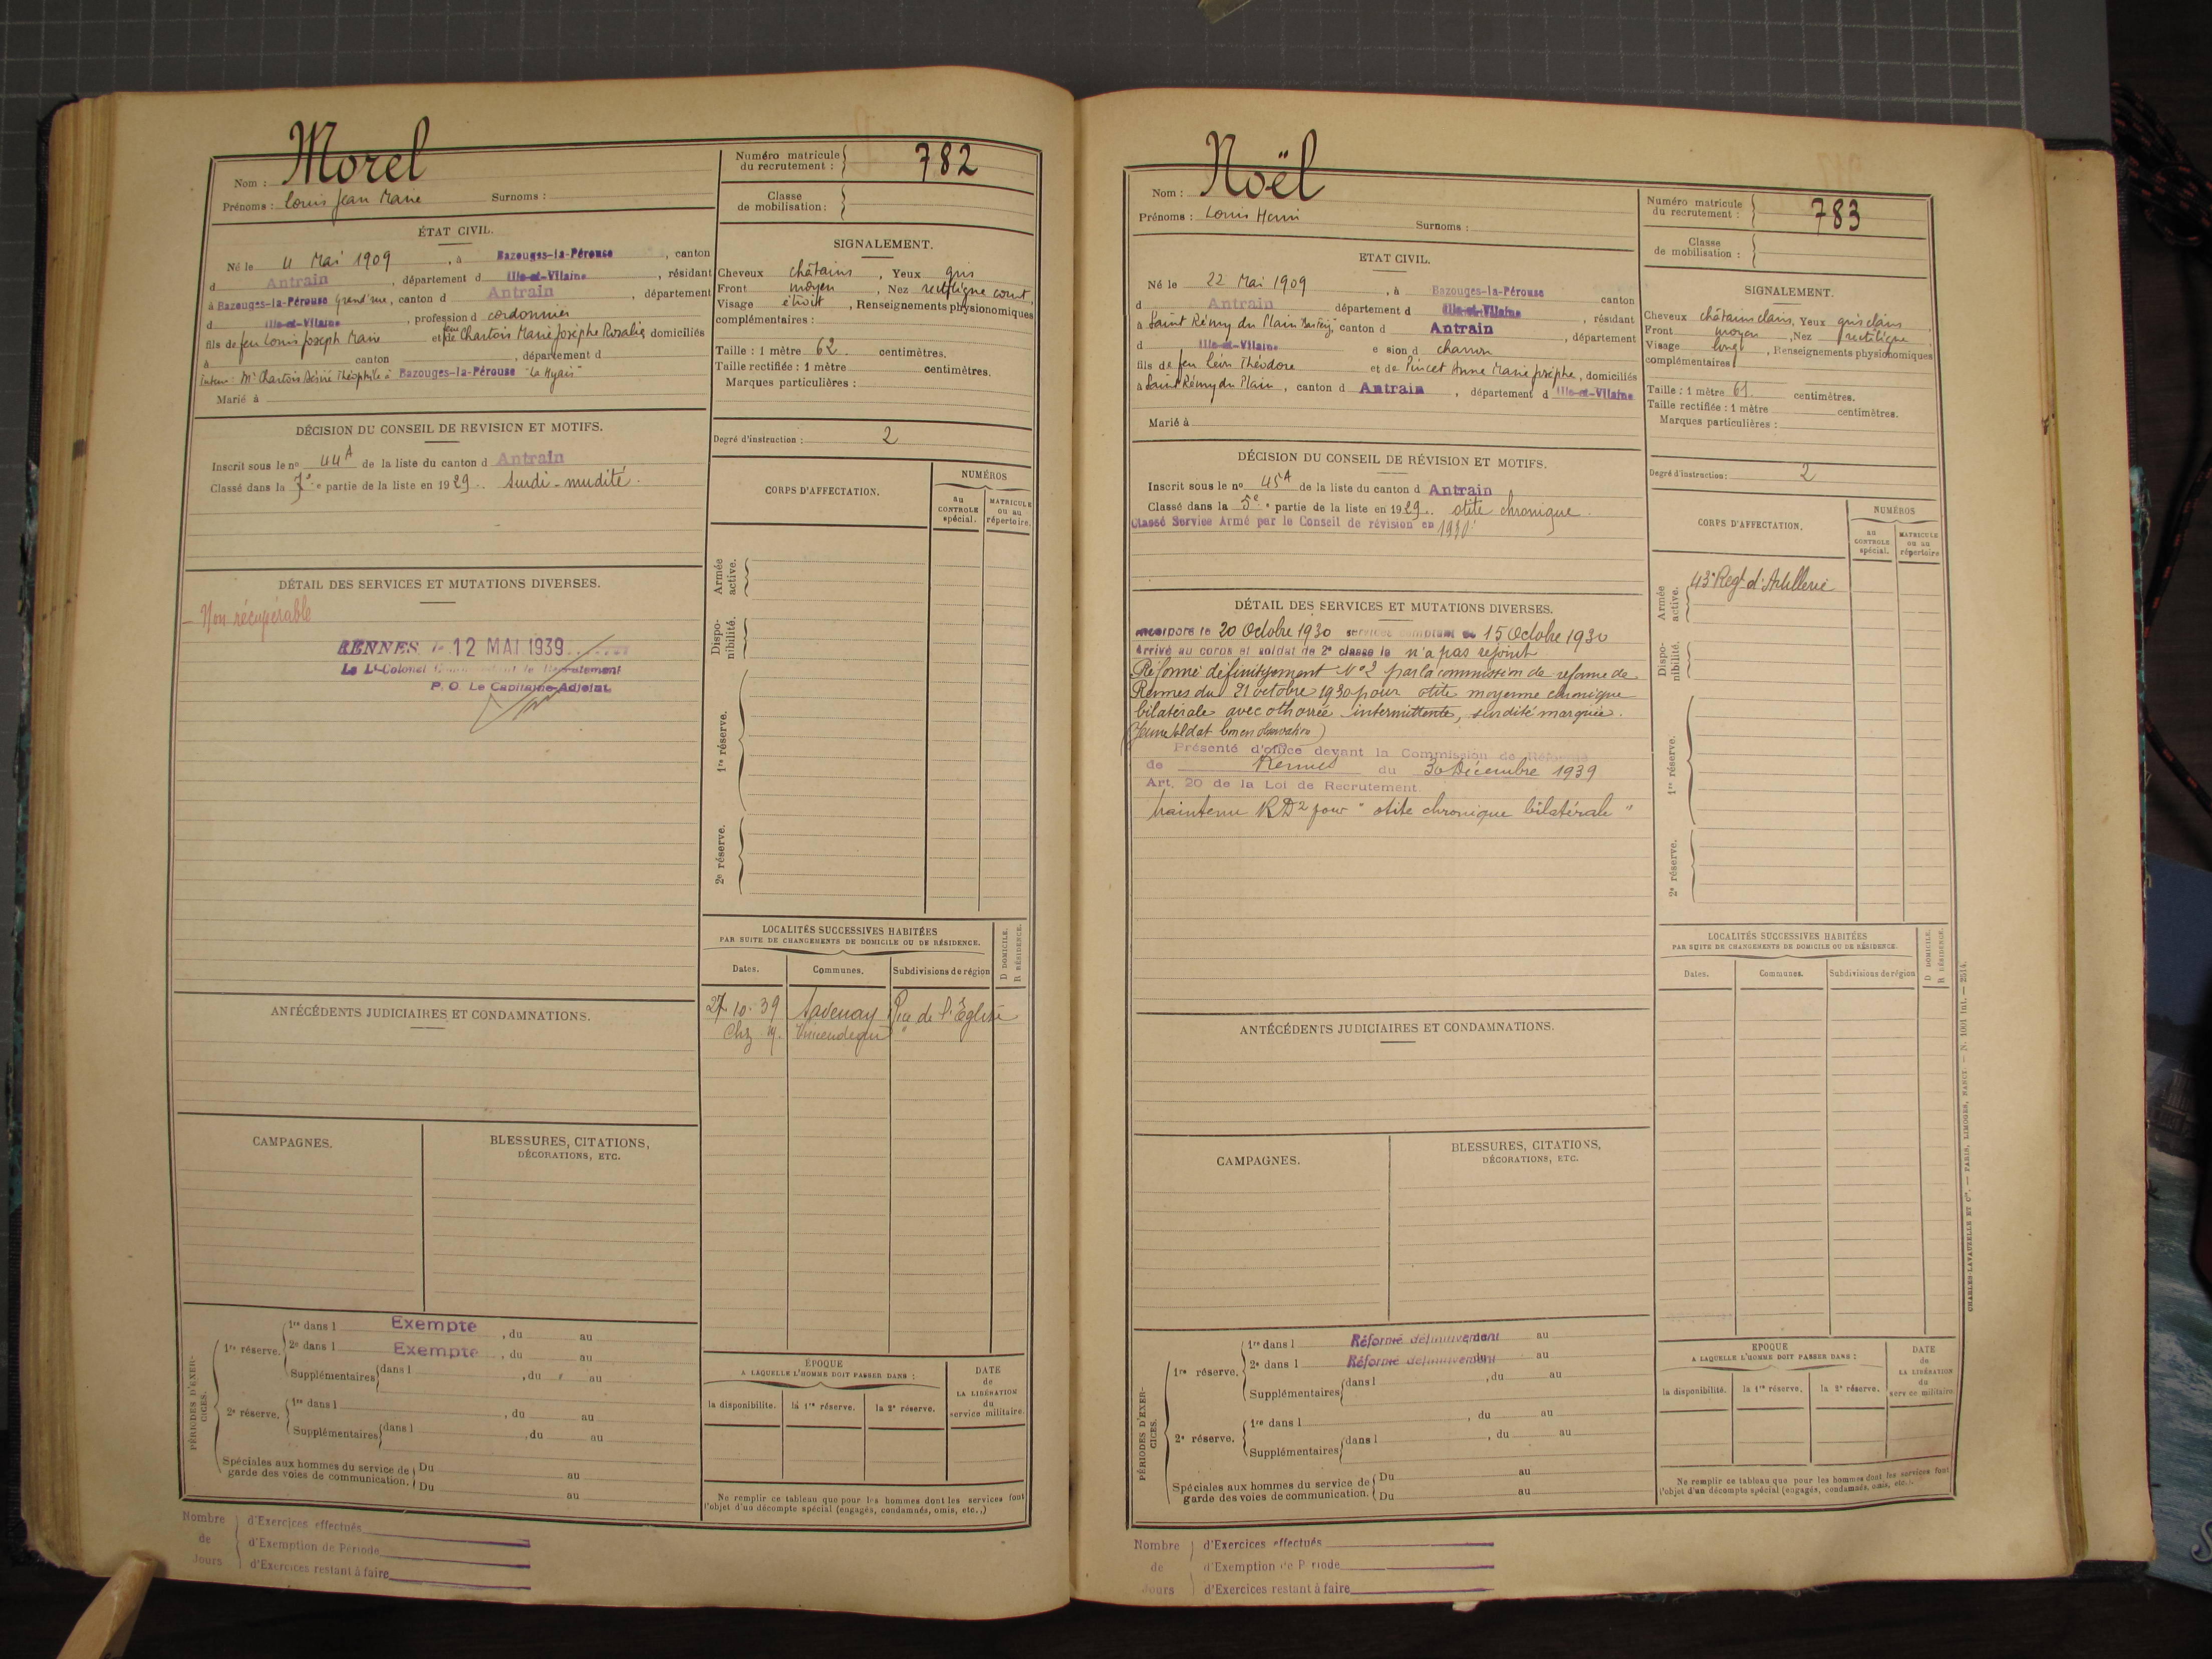 Nom : Morel
Prénoms : Louis Jean Marie Surnoms :
ÉTAT CIVIL.
Né le 4 Mai 1909, à Bazouges-la-Pérouse, canton
d Antrain, département d Ille-et-Vilaine, résidant
à Bazouges-la-Pérouse Grand'rue, canton d Antrain, département
d Ille-et-Vilaine, profession d cordonnier
fils de feu Louis Joseph Marie et de feue Chartois Marie Josèphe Rosalie, domiciliés
à canton , département d
Tuteur : Mr Chartois Désiré Théophile à Bazouges-la-Pérouse "La Hyais"
Marié à
DÉCISION DU CONSEIL DE REVISION ET MOTIFS.
Inscrit sous le no 44A de la liste du canton d Antrain
Classé dans la 7e e partie de la liste en 1929. Surdi-mudité.
DÉTAIL DES SERVICES ET MUTATIONS DIVERSES.
- Non récupérable
RENNES le 12 MAI 1939
Le Lt-Colonel Commandant le Recrutement
P. O. Le Capitaine-Adjoint
ANTÉCÉDENTS JUDICIAIRES ET CONDAMNATIONS.
CAMPAGNES.
BLESSURES, CITATIONS,
DÉCORATIONS, ETC.
PÉRIODES D'EXERCICES.
1re réserve.
1re dans l Exempte , du au
2e dans l Exempte , du au
Supplémentaires dans l , du au
2e réserve.
1re dans l , du au
Supplémentaires dans l , du au
Spéciales aux hommes du service de
garde des voies de communication.
Du au
Du au
Nombre
de
Jours
d'Exercices effectués
d'Exemption de Période
d'Exercices restant à faire
Numéro matricule
du recrutement : 782
Classe
de mobilisation :
SIGNALEMENT.
Cheveux châtains, Yeux gris
Front moyen, Nez rectiligne court,
Visage étroit, Renseignements physionomiques
complémentaires :
Taille : 1 mètre 62 centimètres.
Taille rectifiée : 1 mètre centimètres.
Marques particulières :
Degré d'instruction : 2
CORPS D'AFFECTATION.
NUMÉROS
au
CONTROLE
spécial.
MATRICULE
ou au
répertoire.
Armée
active.
Dispo-
nibilité.
1re réserve.
2e réserve.
LOCALITÉS SUCCESSIVES HABITÉES
PAR SUITE DE CHANGEMENTS DE DOMICILE OU DE RÉSIDENCE.
D DOMICILE.
R RÉSIDENCE.
Dates. Communes. Subdivisions de région
27. 10. 39 Savenay Rue de l'Eglise
Chz
ÉPOQUE
A LAQUELLE L'HOMME DOIT PASSER DANS :
la disponibilité. la 1re réserve. la 2e réserve.
DATE
de
LA LIBÉRATION
du
service militaire.
Ne remplir ce tableau que pour les hommes dont les services font
l'objet d'un décompte spécial (engagés, condamnés, omis, etc..)
Nom : Noël
Prénoms : Louis Henri
Surnoms :
ETAT CIVIL.
Né le 22 Mai 1909, à Bazouges-la-Pérouse canton
d Antrain département d Ille-et-Vilaine, résidant
à Saint Rémy du Plain, canton d Antrain, département
d Ille-et-Vilaine e sion d charron
fils de feu Léon Théodore et de Pincet Anne Marie Josèphe, domiciliés
à Saint Rémy du Plain, canton d Antrain, département d Ille-et-Vilaine
Marié à
DÉCISION DU CONSEIL DE RÉVISION ET MOTIFS.
Inscrit sous le no 45A de la liste du canton d Antrain
Classé dans la 5e e partie de la liste en 1929. otite chronique.
Classé Service Armé par le Conseil de révision en 1930
DÉTAIL DES SERVICES ET MUTATIONS DIVERSES.
Incorporé le 20 Octobre 1930 services comptant du 15 Octobre 1930
Arrivé au corps et soldat de 2e classe le n'a pas rejoint
Réformé définitivement No 2 par la commission de réforme de
Rennes du 21 octobre 1930 pour otite moyenne chronique
bilatérale avec othorrée intermittente, surdité marquée.
(Jeune soldat bon en observation)
Présenté d'office devant la Commission de Réforme
de Rennes du 30 Décembre 1939
Art. 20 de la Loi de Recrutement.
Maintenu RD2 pour "otite chronique bilatérale"
ANTÉCÉDENTS JUDICIAIRES ET CONDAMNATIONS.
CAMPAGNES.
BLESSURES, CITATIONS,
DÉCORATIONS, ETC.
PÉRIODES D'EXERCICES.
1re réserve.
1re dans l Réformé définitivement au
2e dans l Réformé définitivement au
Supplémentaires dans l , du au
2e réserve.
1re dans l , du au
Supplémentaires dans l , du au
Spéciales aux hommes du service de
garde des voies de communication.
Du au
Du au
Nombre
de
Jours
d'Exercices effectués
d'Exemption de P riode
d'Exercices restant à faire
Numéro matricule
du recrutement : 783
Classe
de mobilisation :
SIGNALEMENT.
Cheveux châtains clairs, Yeux gris clairs
Front moyen, Nez rectiligne
Visage long, Renseignements physionomiques
complémentaires
Taille : 1 mètre 61. centimètres.
Taille rectifiée : 1 mètre centimètres.
Marques particulières :
Degré d'instruction : 2
CORPS D'AFFECTATION.
NUMÉROS
au
CONTROLE
spécial.
MATRICULE
ou au
répertoire
Armée
active.
43e Regt d'Artillerie
Dispo-
nibilité.
1re réserve.
2e réserve.
LOCALITÉS SUCCESSIVES HABITÉES
PAR SUITE DE CHANGEMENTS DE DOMICILE OU DE RÉSIDENCE.
D DOMICILE.
R RÉSIDENCE.
Dates. Communes. Subdivisions de région
EPOQUE
A LAQUELLE L'HOMME DOIT PASSER DANS :
la disponibilité. la 1re réserve. la 2e réserve.
DATE
de
LA LIBÉRATION
du
serv ce militaire.
Ne remplir ce tableau que pour les hommes dont les services font
l'objet d'un décompte spécial (engagés, condamnés, omis, etc.).
CHARLES-LAVAUZELLE ET Cie. — PARIS, LIMOGES, NANCY. — N. 1001 int. — 2514.